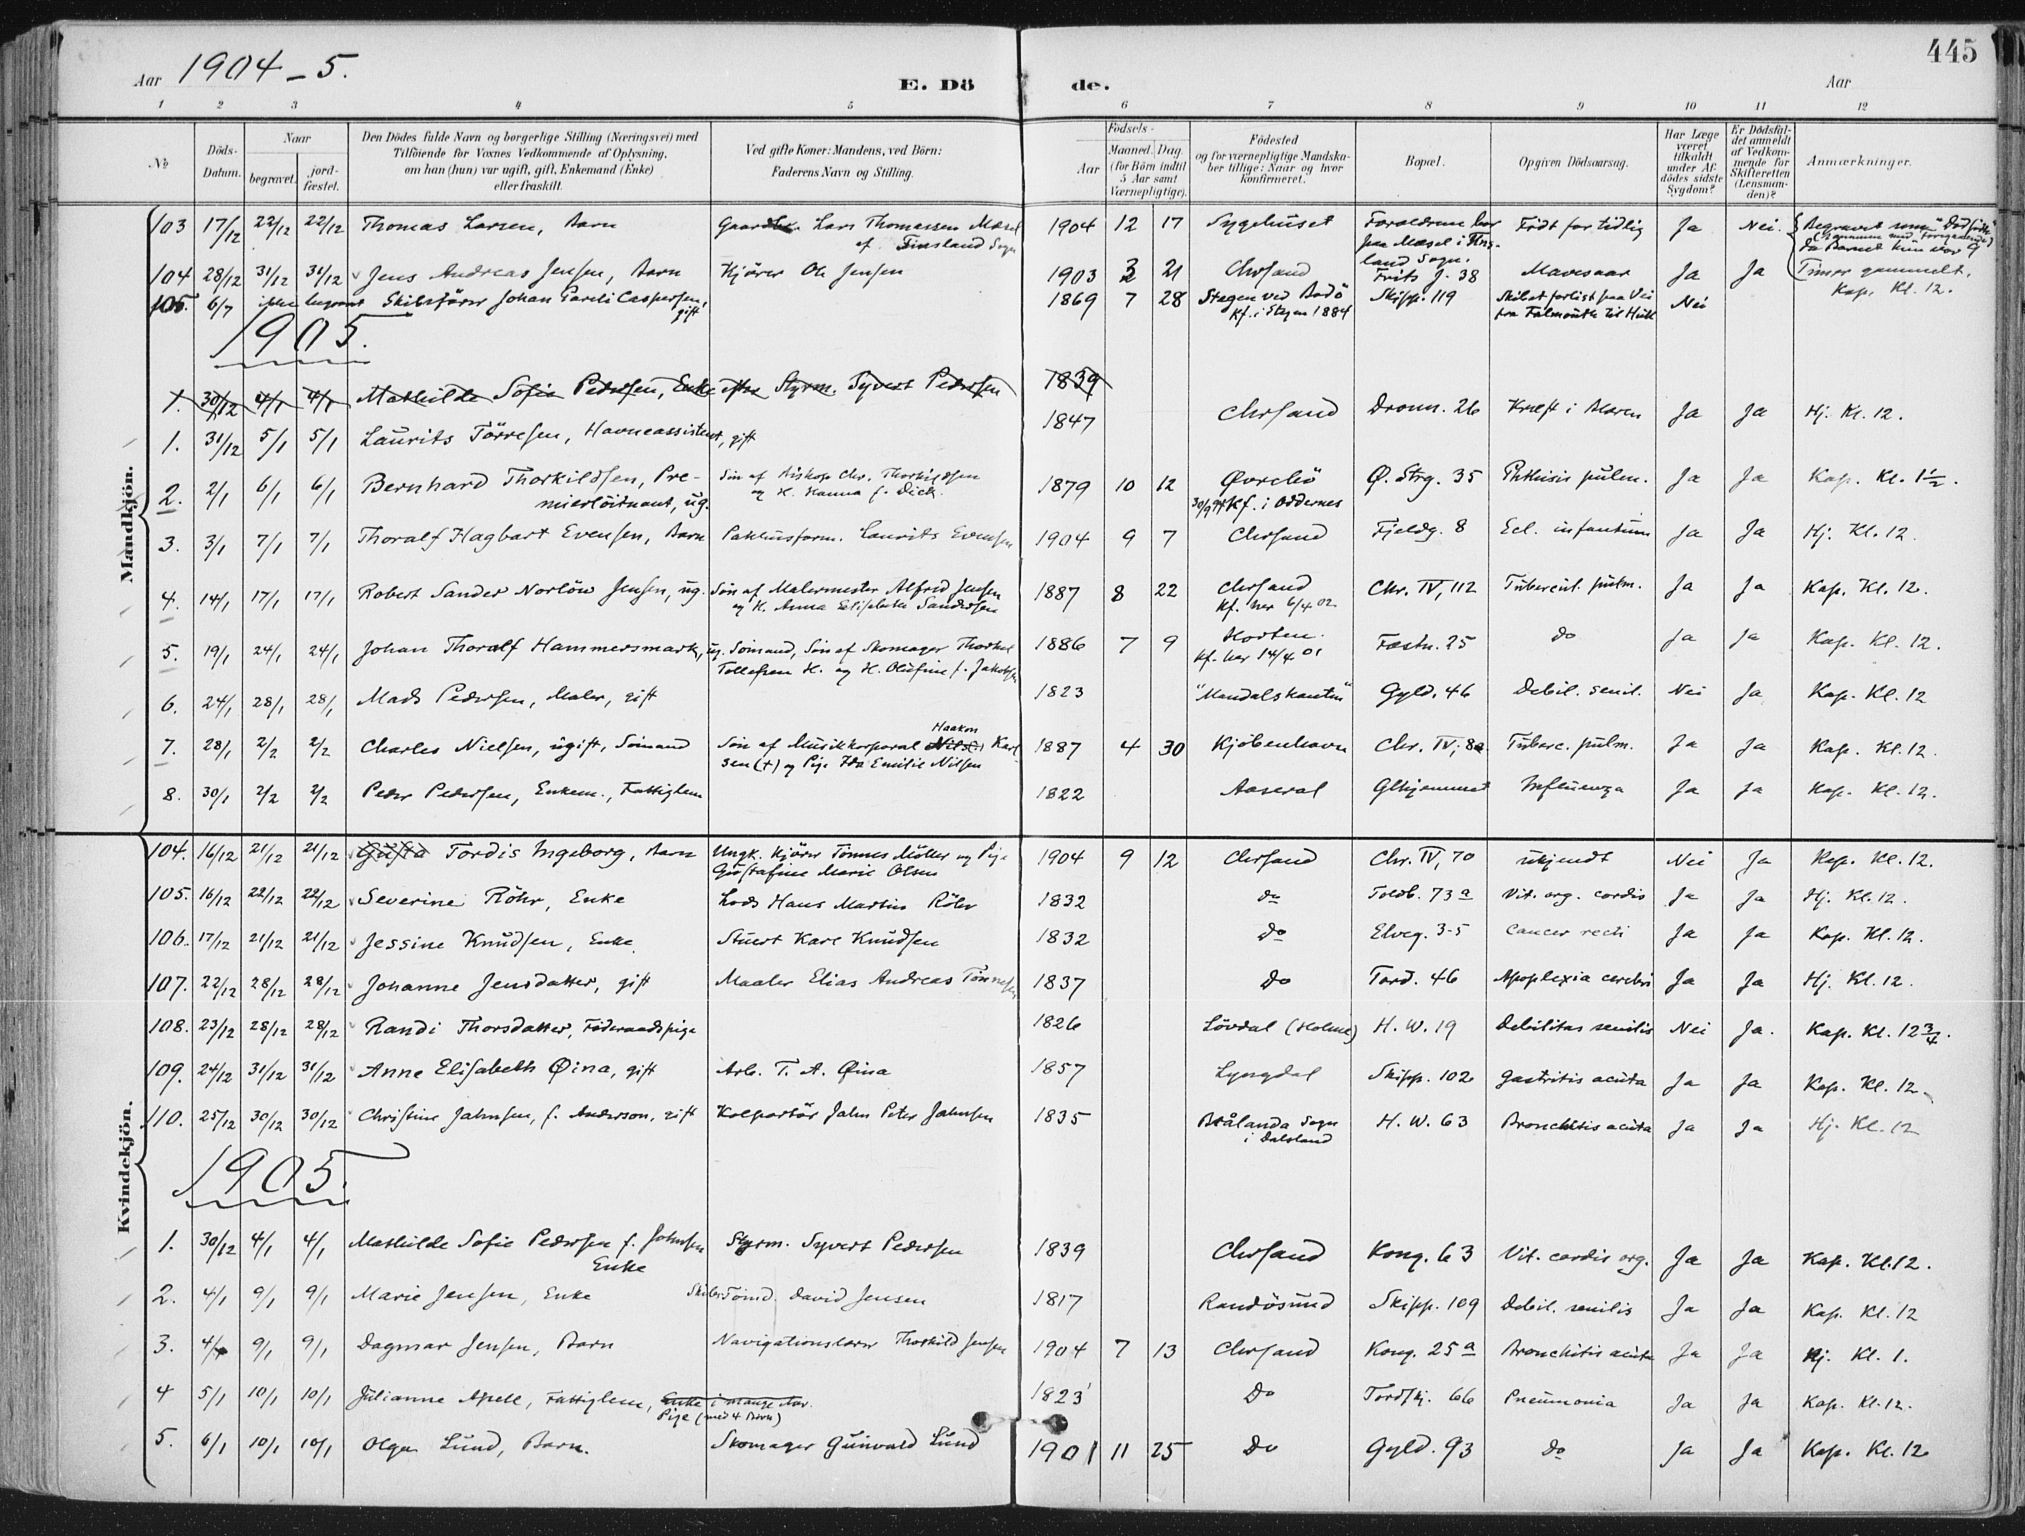 445
Aar 1904-5.
E. Dö de.
Aar
1 2 3 4 5 6 7 8 9 10 11 12
No
Döds-Datum.
Naar
begravet.
jordfæstet.
Den Dödes fulde Navn og borgerlige Stilling (Næringsvei) med
Tilföiende for Voxnes Vedkommende af Oplysning,
om han (hun) var ugift, gift, Enkemand (Enke)
eller fraskilt.
Ved gifte Koner: Mandens, ved Börn:
Faderens Navn og Stilling.
Födsels-
Aar
Maaned. Dag.
(for Börn indtil 5 Aar samt Værnepligtige).
Födested
og for værnepligtige Mandskaber tillige: Naar og hvor konfirmeret.
Bopæl.
Opgiven Dödsaarsag.
Har Læge været tilkaldt under Afdödes sidste Sygdom?
Er Dödsfaldet anmeldt af Vedkommende for Skifteretten (Lensmanden)?
Anmærkninger.
Mandkjön.
103 17/12 22/12 22/12 Thomas Larsen, Barn Lars Thomassen Mæsel af Finsland Sogn 1904 12 17 Sygehuset Forældrene bor paa Mæsel i Finsland Sogn. Födt for tidlig Ja Nei. Begravet som Dödfödt da Barnet kun var 9 Timer gammelt. Kap. Kl. 12.
104 28/12 31/12 31/12 Jens Andreas Jensen, Barn Kjörer Ole Jensen 1903 3 21 Chrsand Frits J. 38 Mavesaar Ja Ja
105. 6/7 ikke begravet Skibsförer Johan Caspersen, gift 1869 7 28 Stegen ved Bodö Kf. i Stegen 1884 Skipp. 119 Skibet forlist paa Vei fra Falmouth til Hull Nei
1905.
1. 30/12 4/1 4/1 Mathilde Sofie Pedersen, Enke efter Styrm. Syvert Pedersen 1839
1. 31/12 5/1 5/1 Laurits Törresen, Havneassistent, gift 1847 Chrsand Dronn. 26 Kræft i Maven Ja Ja Hj. Kl. 12.
2. 2/1 6/1 6/1 Bernhard Thorkildsen, Premierlöitnant, ug. Sön af Biskop Chr. Thorkildsen og H. Hanna f. Dick. 1879 10 12 Øvrebö 30/9 94 Kf. i Oddernes Ø. Strg. 35 Phthisis pulm. Ja Ja Kap. Kl. 1 1/2.
3. 3/1 7/1 7/1 Thoralf Hagbart Evensen, Barn Pakhusform. Laurits Evensen 1904 9 7 Chrsand Fjeldg. 8 Ecl. infantum Ja Ja Hj. Kl. 12.
4. 14/1 17/1 17/1 Robert Sander Norlöw Jensen, ug. Sön af Malermester Alfred Jensen og H. Anna Elisabeth Sandersen 1887 8 22 Chrsand Kf. her 6/4 02 Chr. IV, 112 Tubercul. pulm. Ja Ja Kap. Kl. 12.
5. 19/1 24/1 24/1 Johan Thoralf Hammersmark, ug. Sömand, Sön af Skomager Thorkel Tollefsen H. og H. Olufine f. Jakobsen 1886 7 9 Horten. Kf. her 14/4 01 Fæstn. 25 do Ja Ja Kap. Kl. 12.
6. 24/1 28/1 28/1 Mads Pedersen, Maler, gift 1823 "Mandalskanten" Gyld. 46 Debil. senil. Nei Ja Kap. Kl. 12
7. 28/1 2/2 2/2 Charles Nielsen, ugift, Sömand Sön af Musikkorporal Haakon Karlsen (+) og Pige Ida Emilie Nilsen 1887 4 30 Kjöbenhavn Chr. IV, 8a Tuberc. pulm. Ja Ja Kap. Kl. 12.
8. 30/1 2/2 2/2 Peder Pedersen, Enkem., Fattiglem 1822 Aaseral Glhjemmet Influenza Ja Ja Kap. Kl. 12.
Kvindekjön.
104. 16/12 21/12 21/12 Gusta Tordis Ingeborg, Barn Ungk. Kjörer Tönnes Möller og Pige Gustafine Marie Olsen 1904 9 12 Chrsand Chr. IV, 70 ukjendt Nei Ja Kap. Kl. 12.
105. 16/12 22/12 22/12 Severine Röhr, Enke Lods Hans Martin Röhr 1832 do Toldb. 73 a Vit. org. cordis Ja Ja Hj. Kl. 12.
106. 17/12 21/12 21/12 Jessine Knudsen, Enke Stuert Karl Knudsen 1832 Do Elveg. 35 Cancer recti Ja Ja Kap. Kl. 12.
107. 22/12 28/12 28/12 Johanne Jensdatter, gift Maaler Elias Andreas Tönnesen 1837 Do Tord. 46 Apoplexia cerebri Ja Ja Hj. Kl. 12.
108. 23/12 28/12 28/12 Randi Thorsdatter, Föderaadspige 1826 Lövdal (Holme) H. W. 19 Debilitas senilis Nei Ja. Kap. Kl. 12 3/4.
109. 24/12 31/12 31/12 Anne Elisabeth Øina, gift Arb. T. A. Øina 1857 Lyngdal Skipp. 102 Gastritis acuta Ja Ja Kap. Kl. 12
110. 25/12 30/12 30/12 Christine Jahnsen, f. Anderson, gift Kolportör Jahn Peter Jahnsen 1835 Brålanda Sogn i Dalsland H. W. 63 Bronchitis acuta Ja Ja Hj. Kl. 12
1905.
1. 30/12 4/1 4/1 Mathilde Sofie Pedersen f. Johnsen Enke Styrm. Syvert Pedersen 1839 Chrsand Kong. 63 Vit. cordis org. Ja Ja Kap. Kl. 12.
2. 4/1 9/1 9/1 Marie Jensen, Enke Skibstömd. David Jensen 1817 Randösund Skipp. 109 Debil. senilis Ja Ja Kap. Kl. 12
3. 4/1 9/1 9/1 Dagmar Jensen, Barn Navigationslærer Thorkild Jensen 1904 7 13 Chrsand Kong. 25 a Bronchitis acuta Ja Ja Hj. Kl. 1.
4 5/1 10/1 10/1 Julianne Apell, Fattiglem, Enke i mange Aar. Pige (med 4 Börn) 1823 Do Tordskj. 66 Pneumonia Ja Ja Kap. Kl. 12.
5. 6/1 10/1 10/1 Olga Lund, Barn. Skomager Gunvald Lund 1901 11 25 Do Gyld. 93 Do Ja Ja Kap. Kl. 12